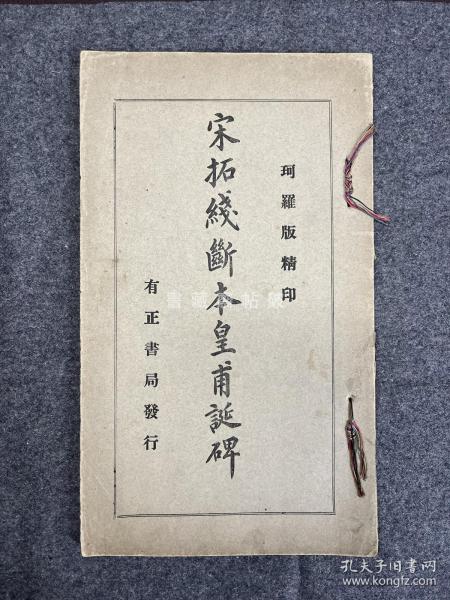 珂羅版精印
宋拓綫斷本皇甫誕碑
有正書局發行
孔夫子旧书网
www.kongfz.com